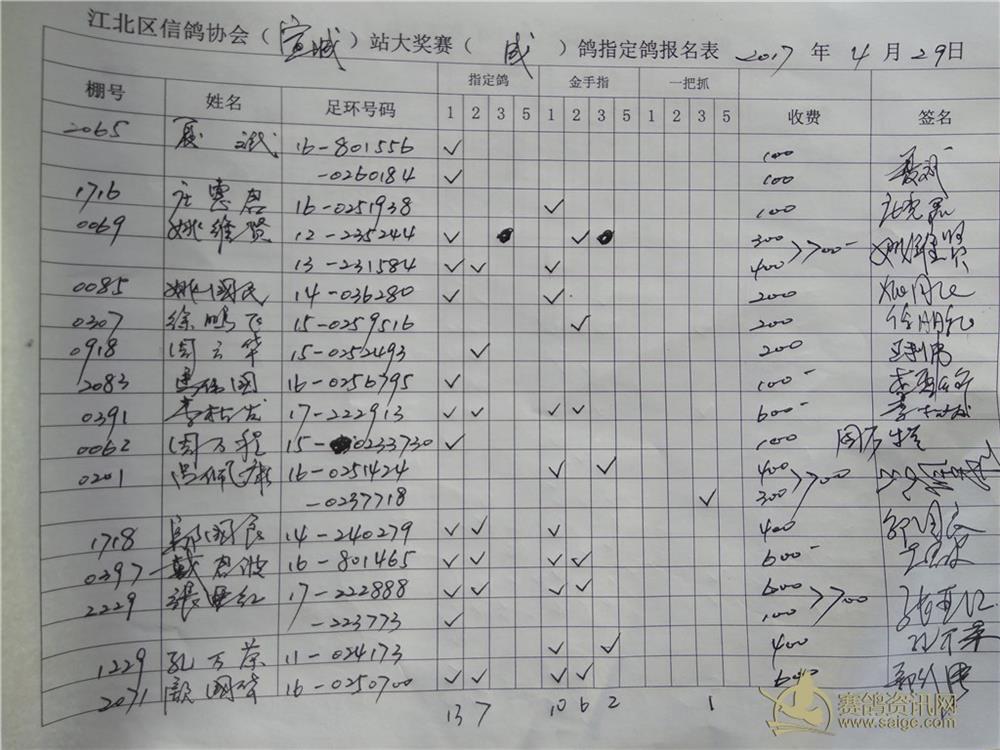 江北区信鸽协会（宣城）站大奖赛（成）鸽指定鸽报名表 2017 年 4 月 29日
棚号 姓名 足环号码 指定鸽 金手指 一把抓 收费 签名
1 2 3 5 1 2 3 5 1 2 3 5
2065 16-801556 ✓ 100
-0260184 ✓ 100
1716 庄惠君 16-0251938 ✓ 100
0069 姚维贤 12-235244 ✓ ✓ 300 >700- 姚维贤
13-231584 ✓ ✓ ✓ 400
0085 姚国民 14-036280 ✓ ✓ 200
0307 徐鹏飞 15-0259516 ✓ 200
0918 周云华 15-0252493 ✓ 200
2083 16-0256795 ✓ 100-
0391 17-222913 ✓ ✓ ✓ ✓ 600-
0062 周万程 15-0233730 ✓ 100
0201 16-0251424 ✓ ✓ 400 >700
-0237718 ✓ 300
1718 邬国良 14-240279 ✓ ✓ ✓ 400
0397- 戴君波 16-801465 ✓ ✓ ✓ ✓ 600-
2229 張亚红 17-222888 ✓ ✓ ✓ ✓ 600 >700 张亚红
-223773 ✓ 100
1229 孔万荣 11-024173 ✓ ✓ 400
2071 16-0250700 ✓ ✓ ✓ ✓ 600
13 7 10 6 2 1
赛鸽资讯网
www.saige.com